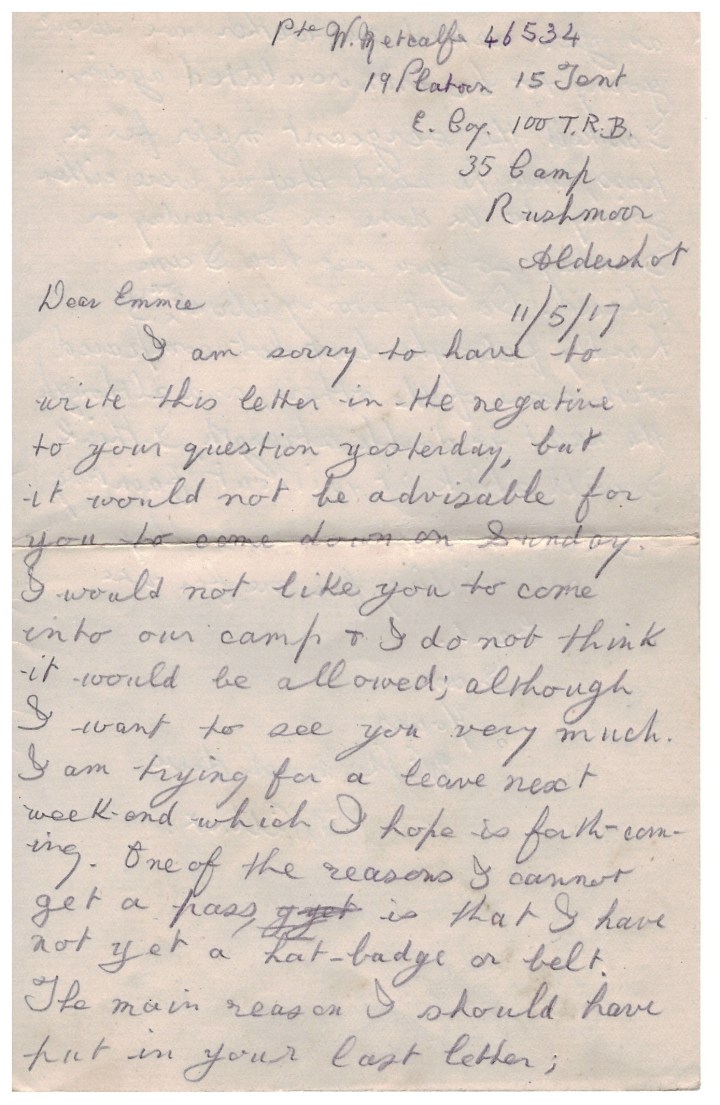 Pte W. Metcalfe 46534
19 Platoon 15 Tent
E. Coy. 100 T.R.B.
35 Camp
Rushmoor
Aldershot
11/5/17
Dear Emmie
I am sorry to have to
write this letter in the negative
to your question yesterday, but
it would not be advisable for
you to come down on Sunday.
I would not like you to come
into our camp & I do not think
it would be allowed; although
I want to see you very much.
I am trying for a leave next
week-end which I hope is forth-com-
ing. One of the reasons I cannot
get a pass, is that I have
not yet a hat-badge or belt.
The main reason I should have
put in your last letter;